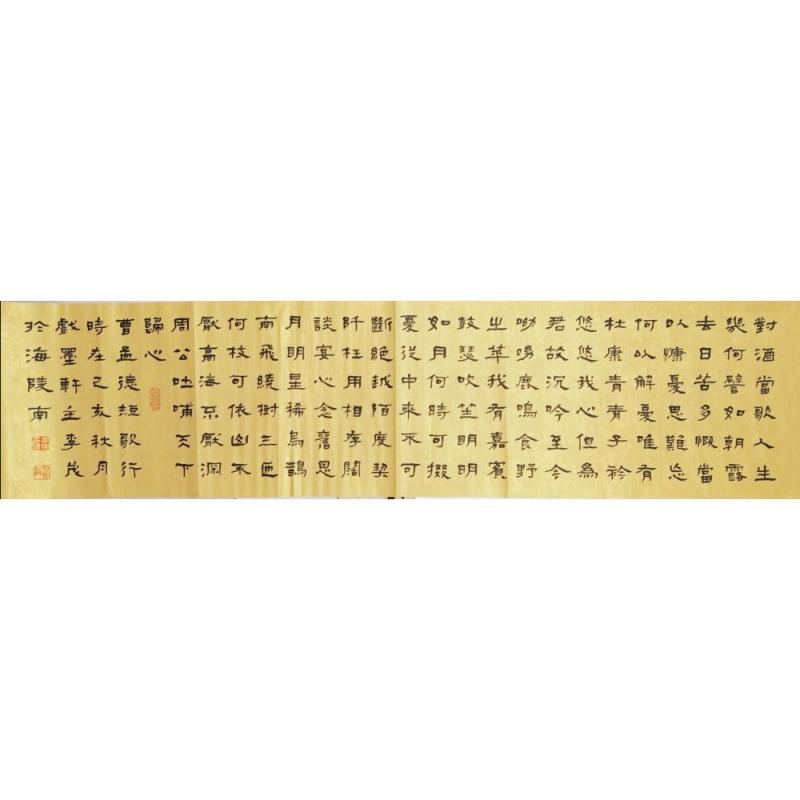 對酒當歌人生
幾何譬如朝露
去日苦多慨當
以慷憂思難忘
何以解憂唯有
杜康青青子衿
悠悠我心但為
君故沉吟至今
呦呦鹿鳴食野
之苹我有嘉賓
鼓瑟吹笙明明
如月何時可掇
憂從中來不可
斷絕越陌度契
阡枉用相存闊
談宴心念舊恩
月明星稀烏鵲
南飛繞樹三匝
何枝可依山不
厭高海不厭深
周公吐哺天下
歸心
曹孟德短歌行
時在己亥秋月
戲墨軒主李茂
於海陵南